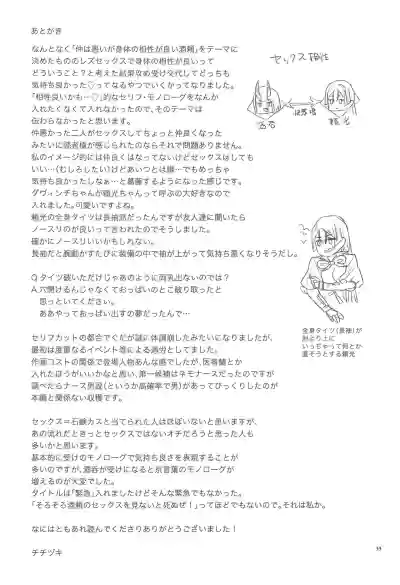 あとがき
なんとなく「仲は悪いが身体の相性が良い酒頼」をテーマに
決めたもののレズセックスで身体の相性が良いって
どういうこと?と考えた結果攻め受け交代してどっちも
気持ち良かった♡ってなるやつでいくかってなりました。
「相性良いかも…♡」的なセリフ・モノローグをなんか
入れたくなくて入れなかったので、そのテーマは
伝わらなかったと思います。
仲悪かった二人がセックスしてちょっと仲良くなった
みたいに読者様が感じられたのならそれで問題ありません。
私のイメージ的には仲良くはなってないけどセックスはしても
いい…(むしろしたい)けどあいつとは嫌…でもめちゃ
気持ち良かったしなぁ…と葛藤するようになった感じです。
ダヴィンチちゃんが頼光ちゃんって呼ぶの大好きなので
入れました。可愛いですよね。
頼光の全身タイツは長袖派だったんですが友人達に聞いたら
ノースリのが良いって言われたのでそうしました。
確かにノースリいいかもしれない。
長袖だと腕動かすたびに装備の中で袖が上がって気持ち悪くなりそうだし。
Q.タイツ破いただけじゃあのように両乳出ないのでは?
A.穴開けるんじゃなくておっぱいのとこ破り取ったと
思っといてください。
ああやっておっぱい出すの夢だったんで…
セリフカットの都合でぐだが謎に体調崩したみたいになりましたが、
最初は度重なるイベント等による過労としてました。
作画コストの関係で登場人物あんな感じでしたが、医者鯖とか
入れたほうがいいかなと思い、第一候補はネモナースだったのですが
調べたらナース男湯(というか高確率で男)があってびっくりしたのが
本編と関係ない収穫です。
セックス=石鹸カスと当てられた人はほぼいないと思いますが、
あの流れだときっとセックスではないオチだろうと思った人も
多いかと思います。
基本的に受けのモノローグで気持ち良さを表現することが
多いのですが、酒呑が受けになると京言葉のモノローグが
増えるのが大変でした。
タイトルは「緊急」入れましたけどそんな緊急でもなかった。
「そろそろ酒頼のセックスを見ないと死ぬぜ!」ってほどでもないので。それは私か。
なにはともあれ読んでくださりありがとうございました!
チチヅキ
セックス相性
酒呑
頼光
全身タイツ(長袖)が
肘より上に
いっちゃって何とか
直そうとする頼光